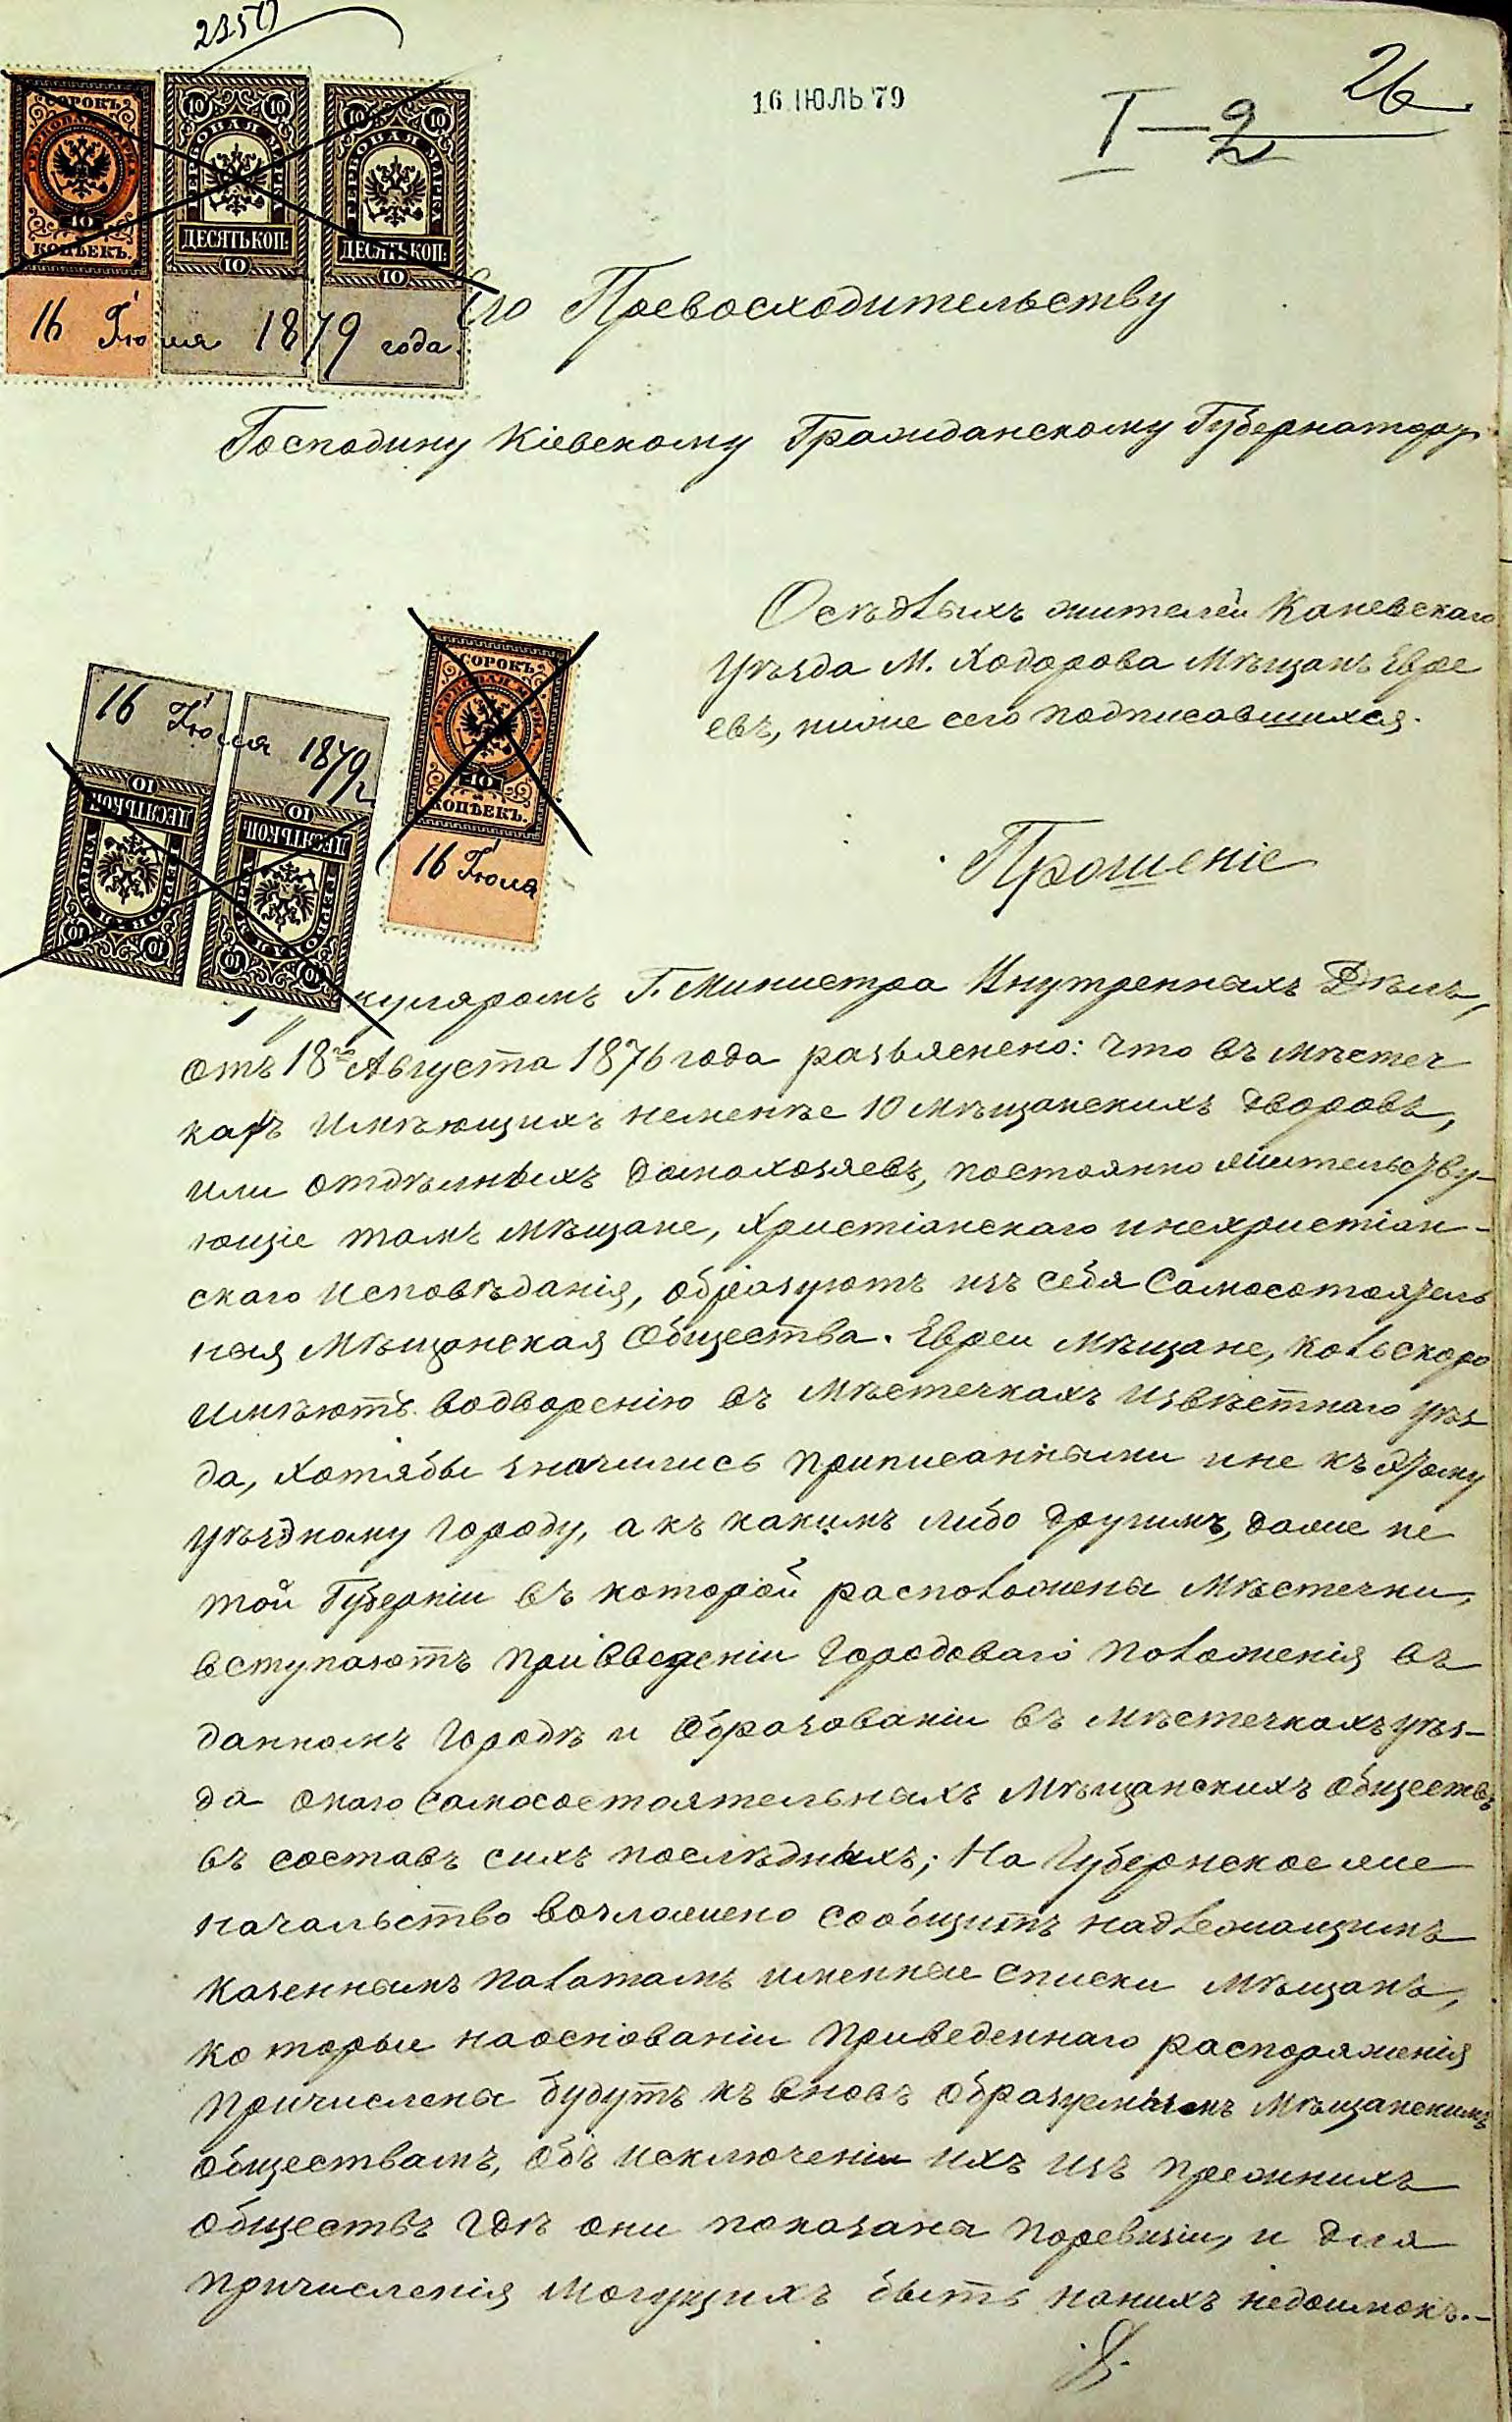 2351
16 ІЮЛЬ 79
26
I—2
СОРОКЪ
ГЕРБОВАЯ МАРКА
40
КОПѢЕКЪ.
10 10
ГЕРБОВАЯ МАРКА
ДЕСЯТЬ КОП:
10
10 10
ГЕРБОВАЯ МАРКА
ДЕСЯТЬ КОП:
10
16 Іюля 1879 года.
Его Превосходительству
Господину Кіевскому Гражданскому Губернатору
Осѣдлыхъ жителей Каневскаго
Уѣзда М. Ходорова Мѣщанъ Евре
евъ, ниже сего подписавшихся.
16 Іюля 1879 г.
10
ДЕСЯТЬ КОП:
ГЕРБОВАЯ МАРКА
10 10
10
ДЕСЯТЬ КОП:
ГЕРБОВАЯ МАРКА
10 10
СОРОКЪ
ГЕРБОВАЯ МАРКА
40
КОПѢЕКЪ.
16 Іюля
Прошеніе
куляромъ Г. Министра Внутренныхъ Дѣлъ,
отъ 18го Августа 1876 года разъяснено: что въ мѣстеч
кахъ имѣющихъ неменѣе 10 мѣщанскихъ дворовъ,
или отдѣлныхъ домохозяевъ, постоянно жительству-
ющіе тамъ мѣщане, Христіанскаго инехристіан-
скаго исповѣданія, образуютъ изъ себя Самосотоятель
ныя Мѣщанская Общества. Евреи Мѣщане, кольскоро
имѣютъ водворенію въ Мѣстечкахъ извѣстнаго уѣз
да, хотябы значились приписанными ине къ этому
уѣздному городу, а къ какимъ либо другимъ, даже не
той Губерніи въ которой расположены Мѣстечки,
вступаютъ при введеніи Городоваго Положенія въ
данномъ Городѣ и Образованіи въ Мѣстечкахъ уѣз-
да онаго самосостоятельныхъ Мѣщанскихъ обществъ
въ составъ сихъ послѣдныхъ; На Губернское же
начальство возложено сообщить надлежащимъ
казеннымъ палатамъ именные списки Мѣщанъ,
которые наоснованіи приведеннаго распоряженія
причислены будутъ къ вновъ образуемымъ Мѣщанскимъ
обществамъ, объ исключеніи ихъ изъ прежнихъ
обществъ гдѣ они показаны поревизіи, и для
причисленія могущихъ быть наних недоимокъ.—